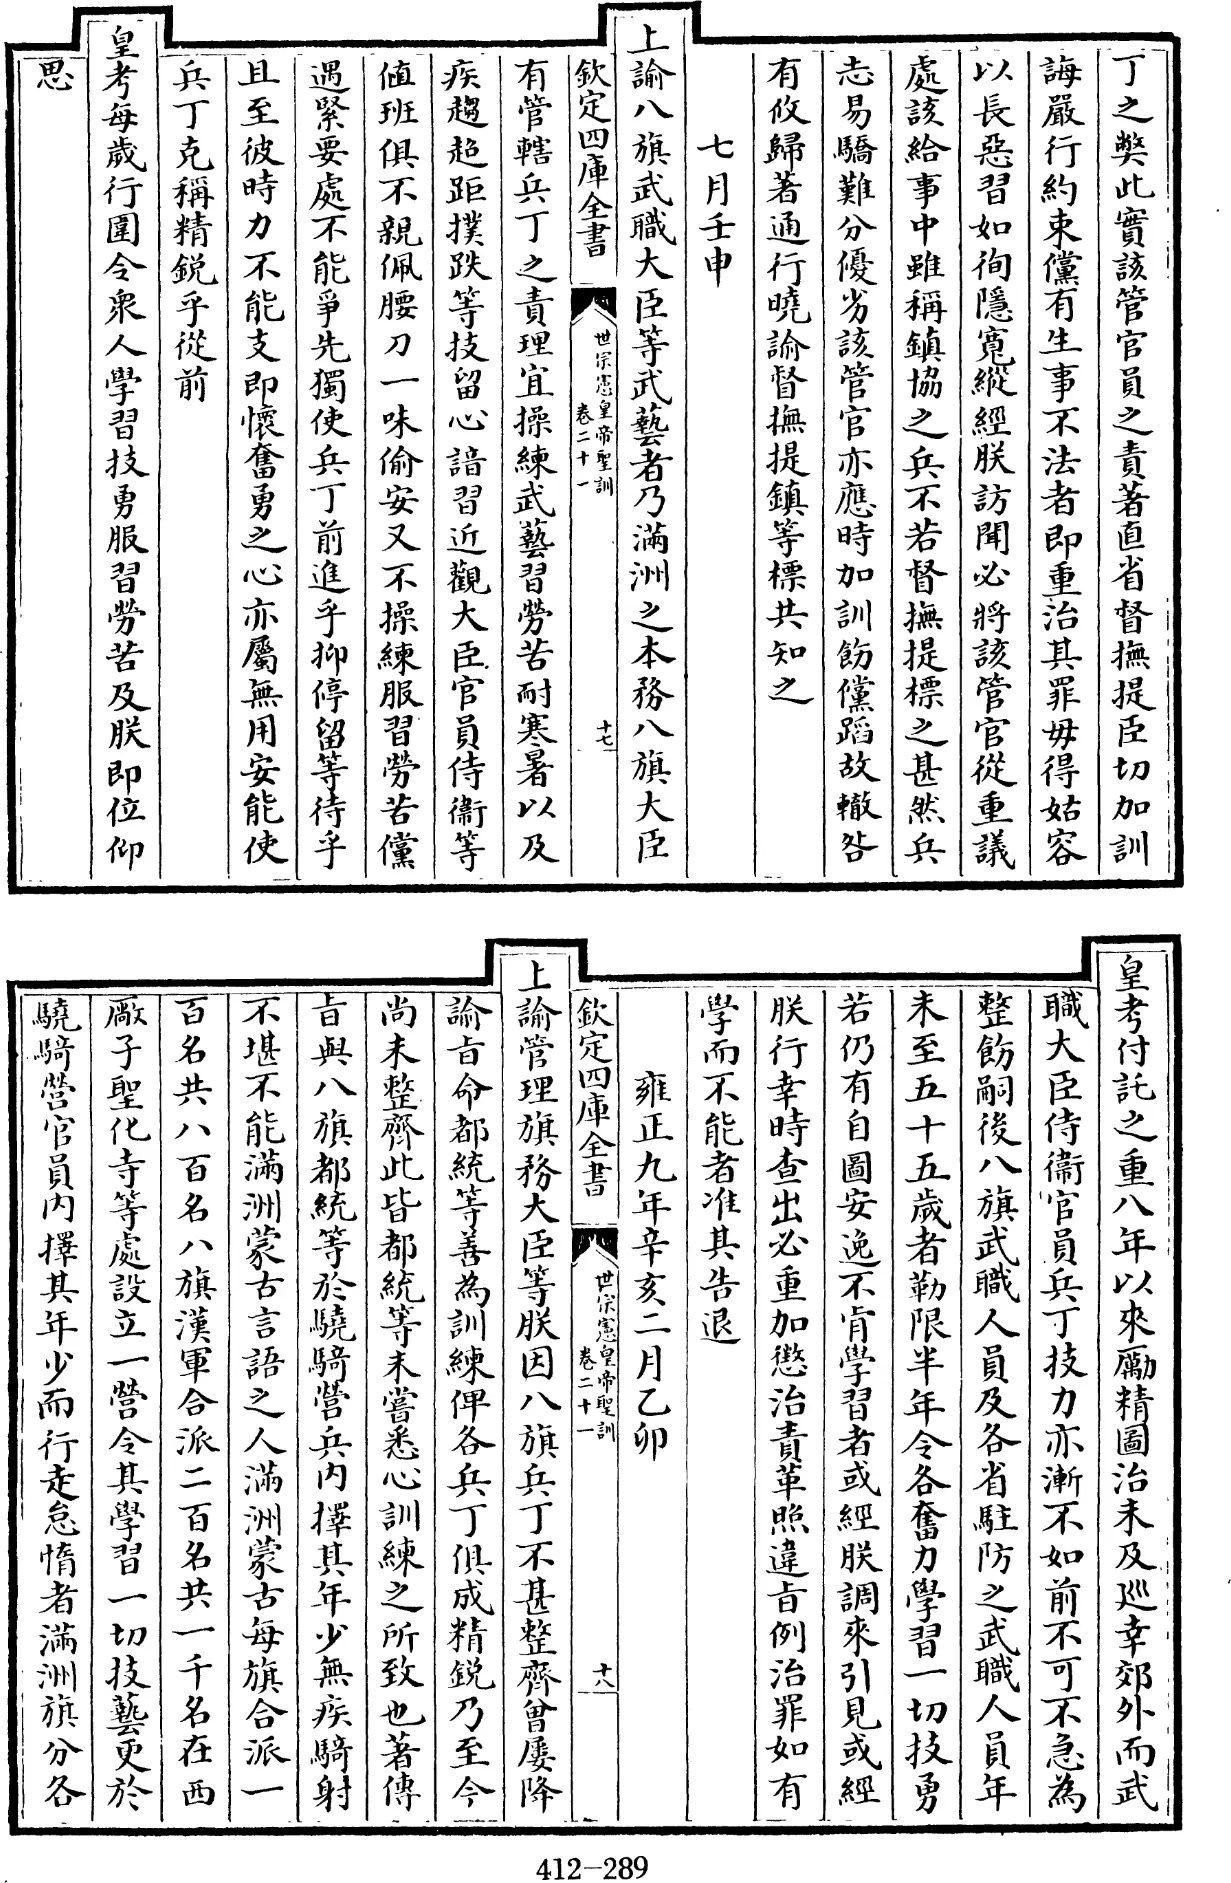 丁之弊此實該管官員之責著直省督撫提臣切加訓
誨嚴行約束儻有生事不法者即重治其罪毋得姑容
以長惡習如徇隱寬縱經朕訪聞必將該管官從重議
處該給事中雖稱鎮協之兵不若督撫提標之甚然兵
志易驕難分優劣該管官亦應時加訓飭儻蹈故轍咎
有攸歸著通行曉諭督撫提鎮等標共知之
七月壬申
上諭八旗武職大臣等武藝者乃滿洲之本務八旗大臣
欽定四庫全書
世宗憲皇帝聖訓
卷二十一
十七
有管轄兵丁之責理宜操練武藝習勞苦耐寒暑以及
疾趨超距撲跌等技留心諳習近觀大臣官員侍衞等
值班俱不親佩腰刀一味偷安又不操練服習勞苦儻
遇緊要處不能爭先獨使兵丁前進乎抑停留等待乎
且至彼時力不能支即懷奮勇之心亦屬無用安能使
兵丁克稱精銳乎從前
皇考每歲行圍令衆人學習技勇服習勞苦及朕即位仰
思
皇考付託之重八年以來勵精圖治未及廵幸郊外而武
職大臣侍衞官員兵丁技力亦漸不如前不可不急為
整飭嗣後八旗武職人員及各省駐防之武職人員年
未至五十五歲者勒限半年令各奮力學習一切技勇
若仍有自圖安逸不肯學習者或經朕調來引見或經
朕行幸時查出必重加懲治責革照違旨例治罪如有
學而不能者准其告退
雍正九年辛亥二月乙卯
欽定四庫全書
世宗憲皇帝聖訓
卷二十一
十八
上諭管理旗務大臣等朕因八旗兵丁不甚整齊曾屢降
諭旨命都統等善為訓練俾各兵丁俱成精銳乃至今
尚未整齊此皆都統等未嘗悉心訓練之所致也著傳
旨與八旗都統等於驍騎營兵內擇其年少無疾騎射
不堪不能滿洲蒙古言語之人滿洲蒙古每旗合派一
百名共八百名八旗漢軍合派二百名共一千名在西
厰子聖化寺等處設立一營令其學習一切技藝更於
驍騎營官員內擇其年少而行走怠惰者滿洲旗分各
412-289